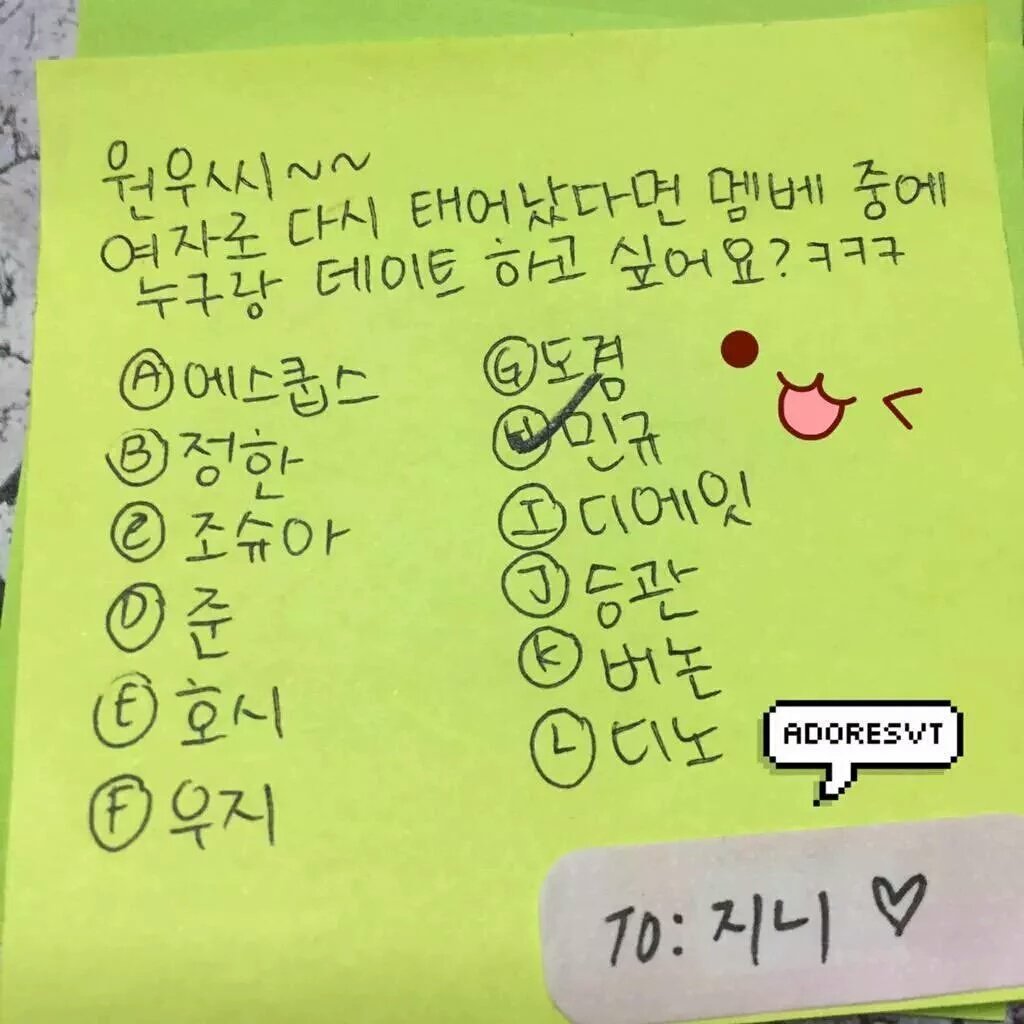 원우씨~~
여자로 다시 태어났다면 멤베 중에
누구랑 데이트 하고 싶어요? ㅋㅋㅋ
Ⓐ 에스쿱스
Ⓑ 정한
Ⓒ 조슈아
Ⓓ 준
Ⓔ 호시
Ⓕ 우지
Ⓖ 도겸
Ⓗ 민규
Ⓘ 디에잇
Ⓙ 승관
Ⓚ 버논
Ⓛ 디노
ADORESVT
TO: 지니 ♡